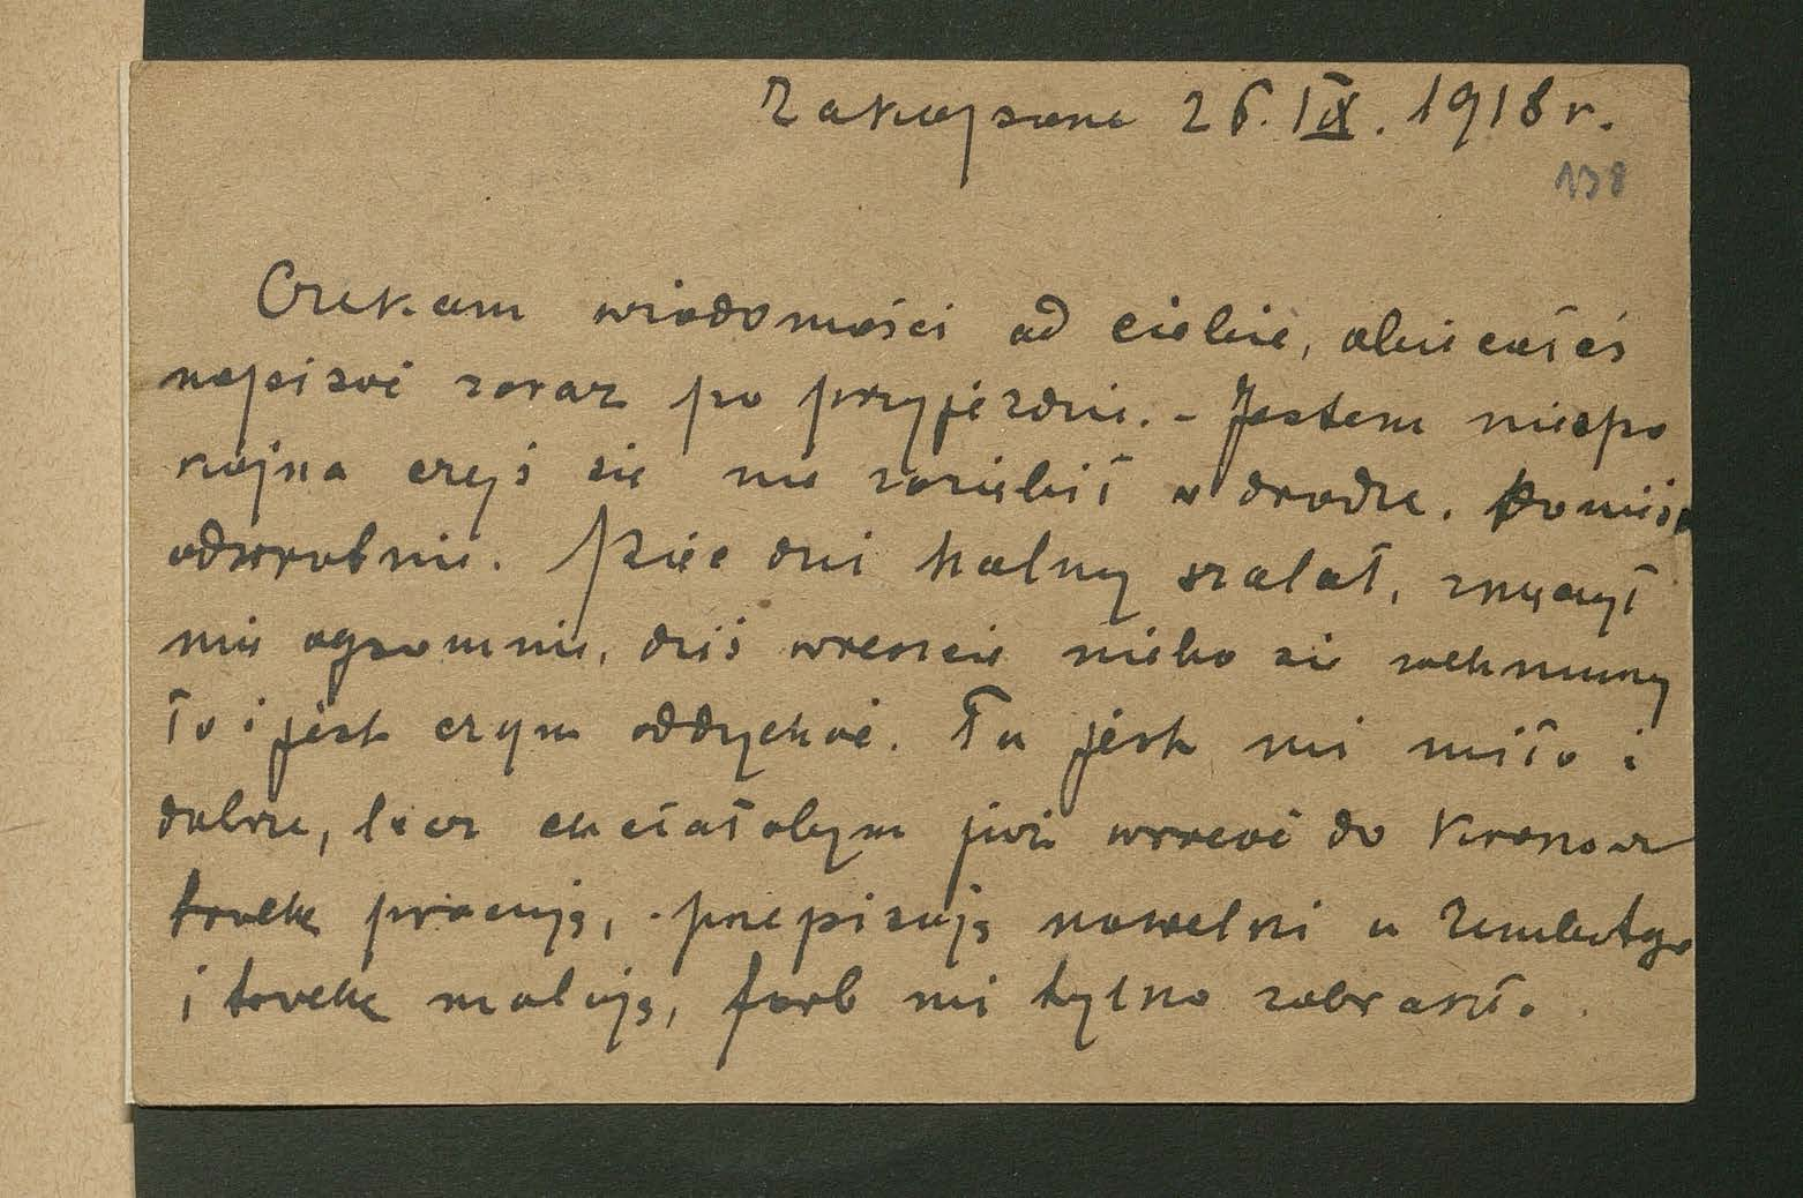 Zakopane 26. IX. 1918 r.
138
Czekam wiadomości od ciebie, obiecałeś
napisać zaraz po przyjeździe. - Jestem niespo
kojna czyś się nie zaziębił w drodze.
odwrotnie. Pięć dni halny szalał, zmęczył
mię ogromnie, dziś wreszcie niebo się zachmurzy
ło i jest czym oddychać. Tu jest mi miło i
dobrze, lecz chciałabym już wracać do Krakowa
trochę pracuję, - przepisuję nowelki u Zembatego
i trochę maluję, farb mi tylko zabrakło.